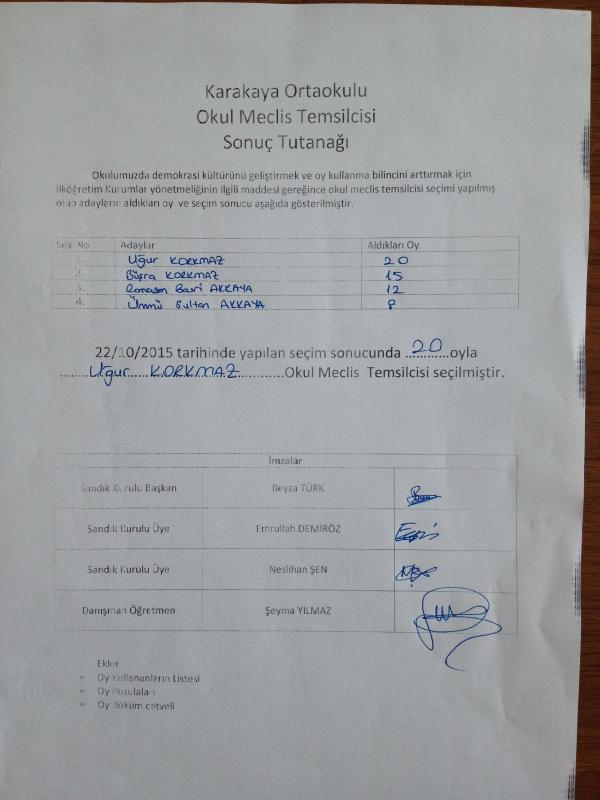 Karakaya Ortaokulu
Okul Meclis Temsilcisi
Sonuç Tutanağı
Okulumuzda demokrasi kültürünü geliştirmek ve oy kullanma bilincini arttırmak için
İlköğretim Kurumlar yönetmeliğinin ilgili maddesi gereğince okul meclis temsilcisi seçimi yapılmış
olup adayların aldıkları oy ve seçim sonucu aşağıda gösterilmiştir.
Sıra No Adaylar Aldıkları Oy
1. Uğur KORKMAZ 20
2. Büşra KORKMAZ 15
3. Ramazan Basri AKKAYA 12
4. Ümmü Sultan AKKAYA 8
22/10/2015 tarihinde yapılan seçim sonucunda ..20..oyla
........Uğur.....KORKMAZ............Okul Meclis Temsilcisi seçilmiştir.
İmzalar
Sandık Kurulu Başkan Beyza TÜRK
Sandık Kurulu Üye Emrullah DEMİRÖZ
Sandık Kurulu Üye Neslihan ŞEN
Danışman Öğretmen Şeyma YILMAZ
Ekler
• Oy Kullananların Listesi
• Oy Pusulaları
• Oy döküm cetveli